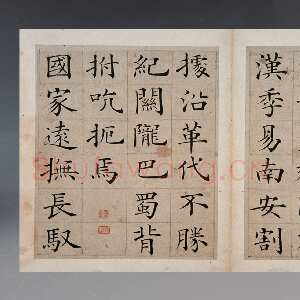 漢季易南安割
據沿革代不勝
紀關隴巴蜀背
拊吭扼焉
國家遠撫長馭